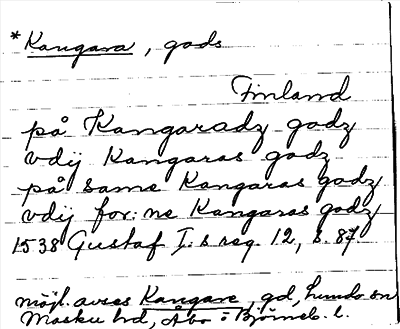 *Kangara, gods
Finland
på Kangaradz godz
vdij Kangaras godz
på same Kangaras godz
vdij for:ne Kangaras godz
1538 Gustaf I:s reg. 12, s. 87.
möjl. avses Kangare, gd, Lemo sn
Masku hd, Åbo o Björneb. l.